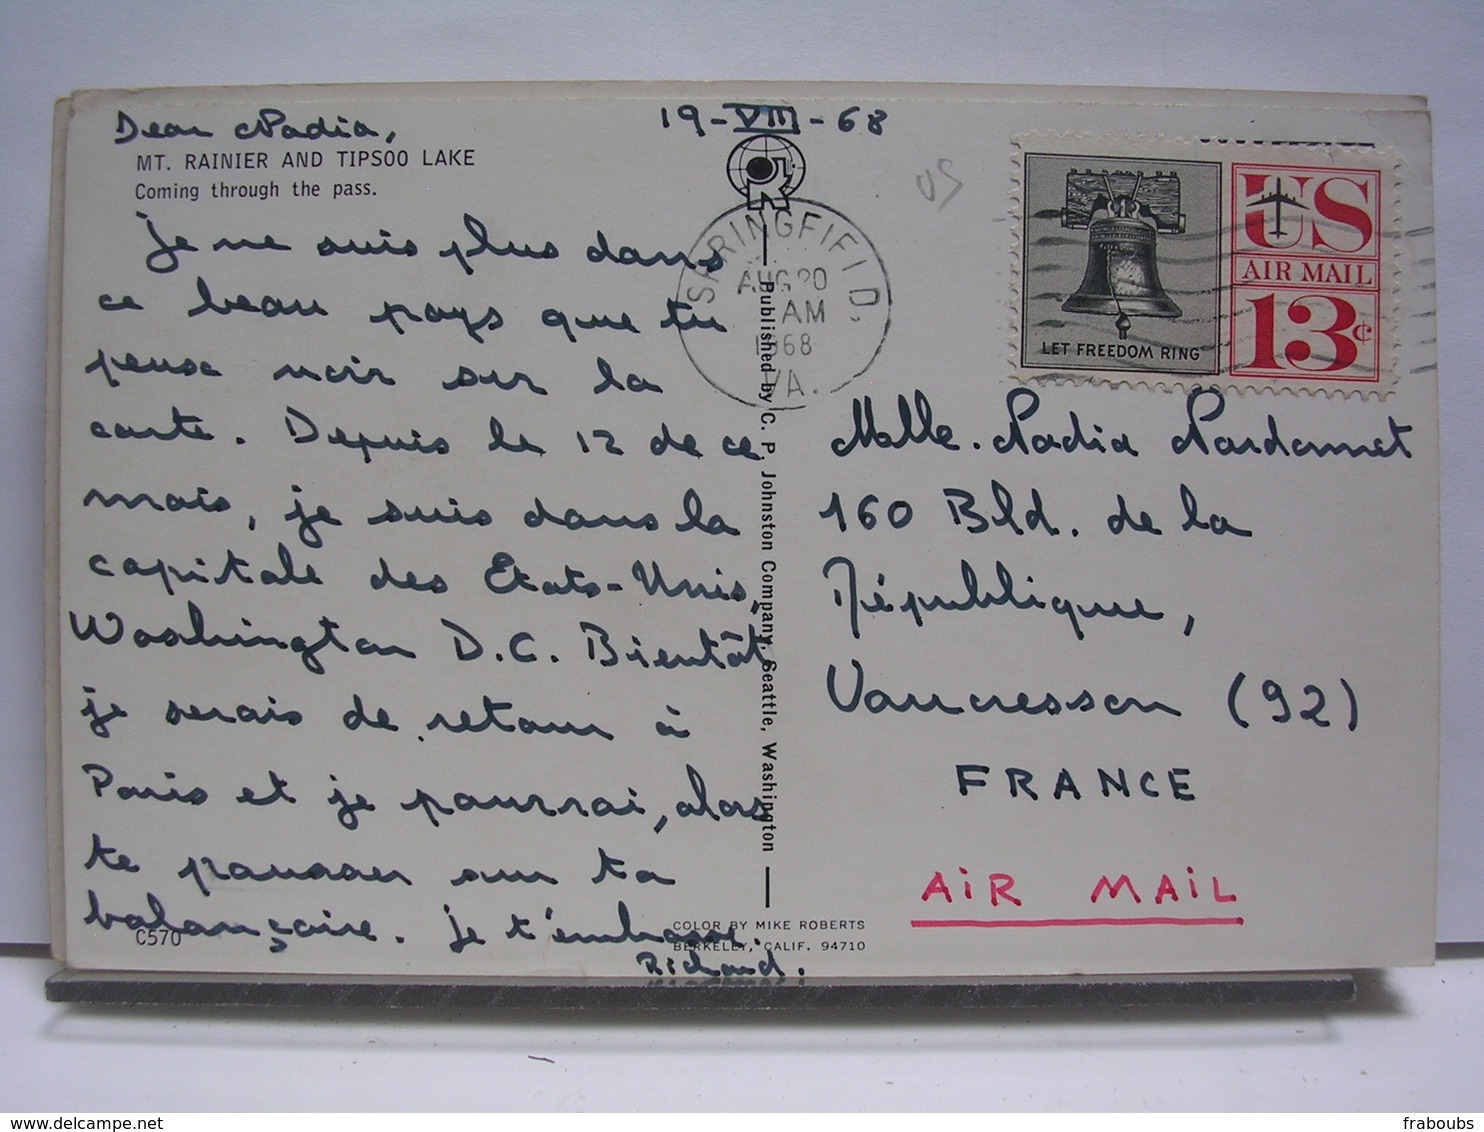 Dear Nadia,
19-VIII-68
MT. RAINIER AND TIPSOO LAKE
Coming through the pass.
Je ne suis plus dans
ce beau pays que tu
peux voir sur la
carte. Depuis le 12 de ce
mois, je suis dans la
capitale des Etats-Unis,
Washington D.C. Bientôt
je serais de retour à
Paris et je pourrai, alors
te pousser sur ta
balançoire. Je t'embrasse.
Richard.
C570
Published by C. P. Johnston Company, Seattle, Washington
COLOR BY MIKE ROBERTS
BERKELEY, CALIF. 94710
US
SPRINGFIELD,
AUG 20
AM
1968
VA.
LET FREEDOM RING
US
AIR MAIL
13c
Mlle. Nadia
160 Bld. de la
République,
Vaucresson (92)
FRANCE
AiR MAiL
delcampe.net
fraboubs